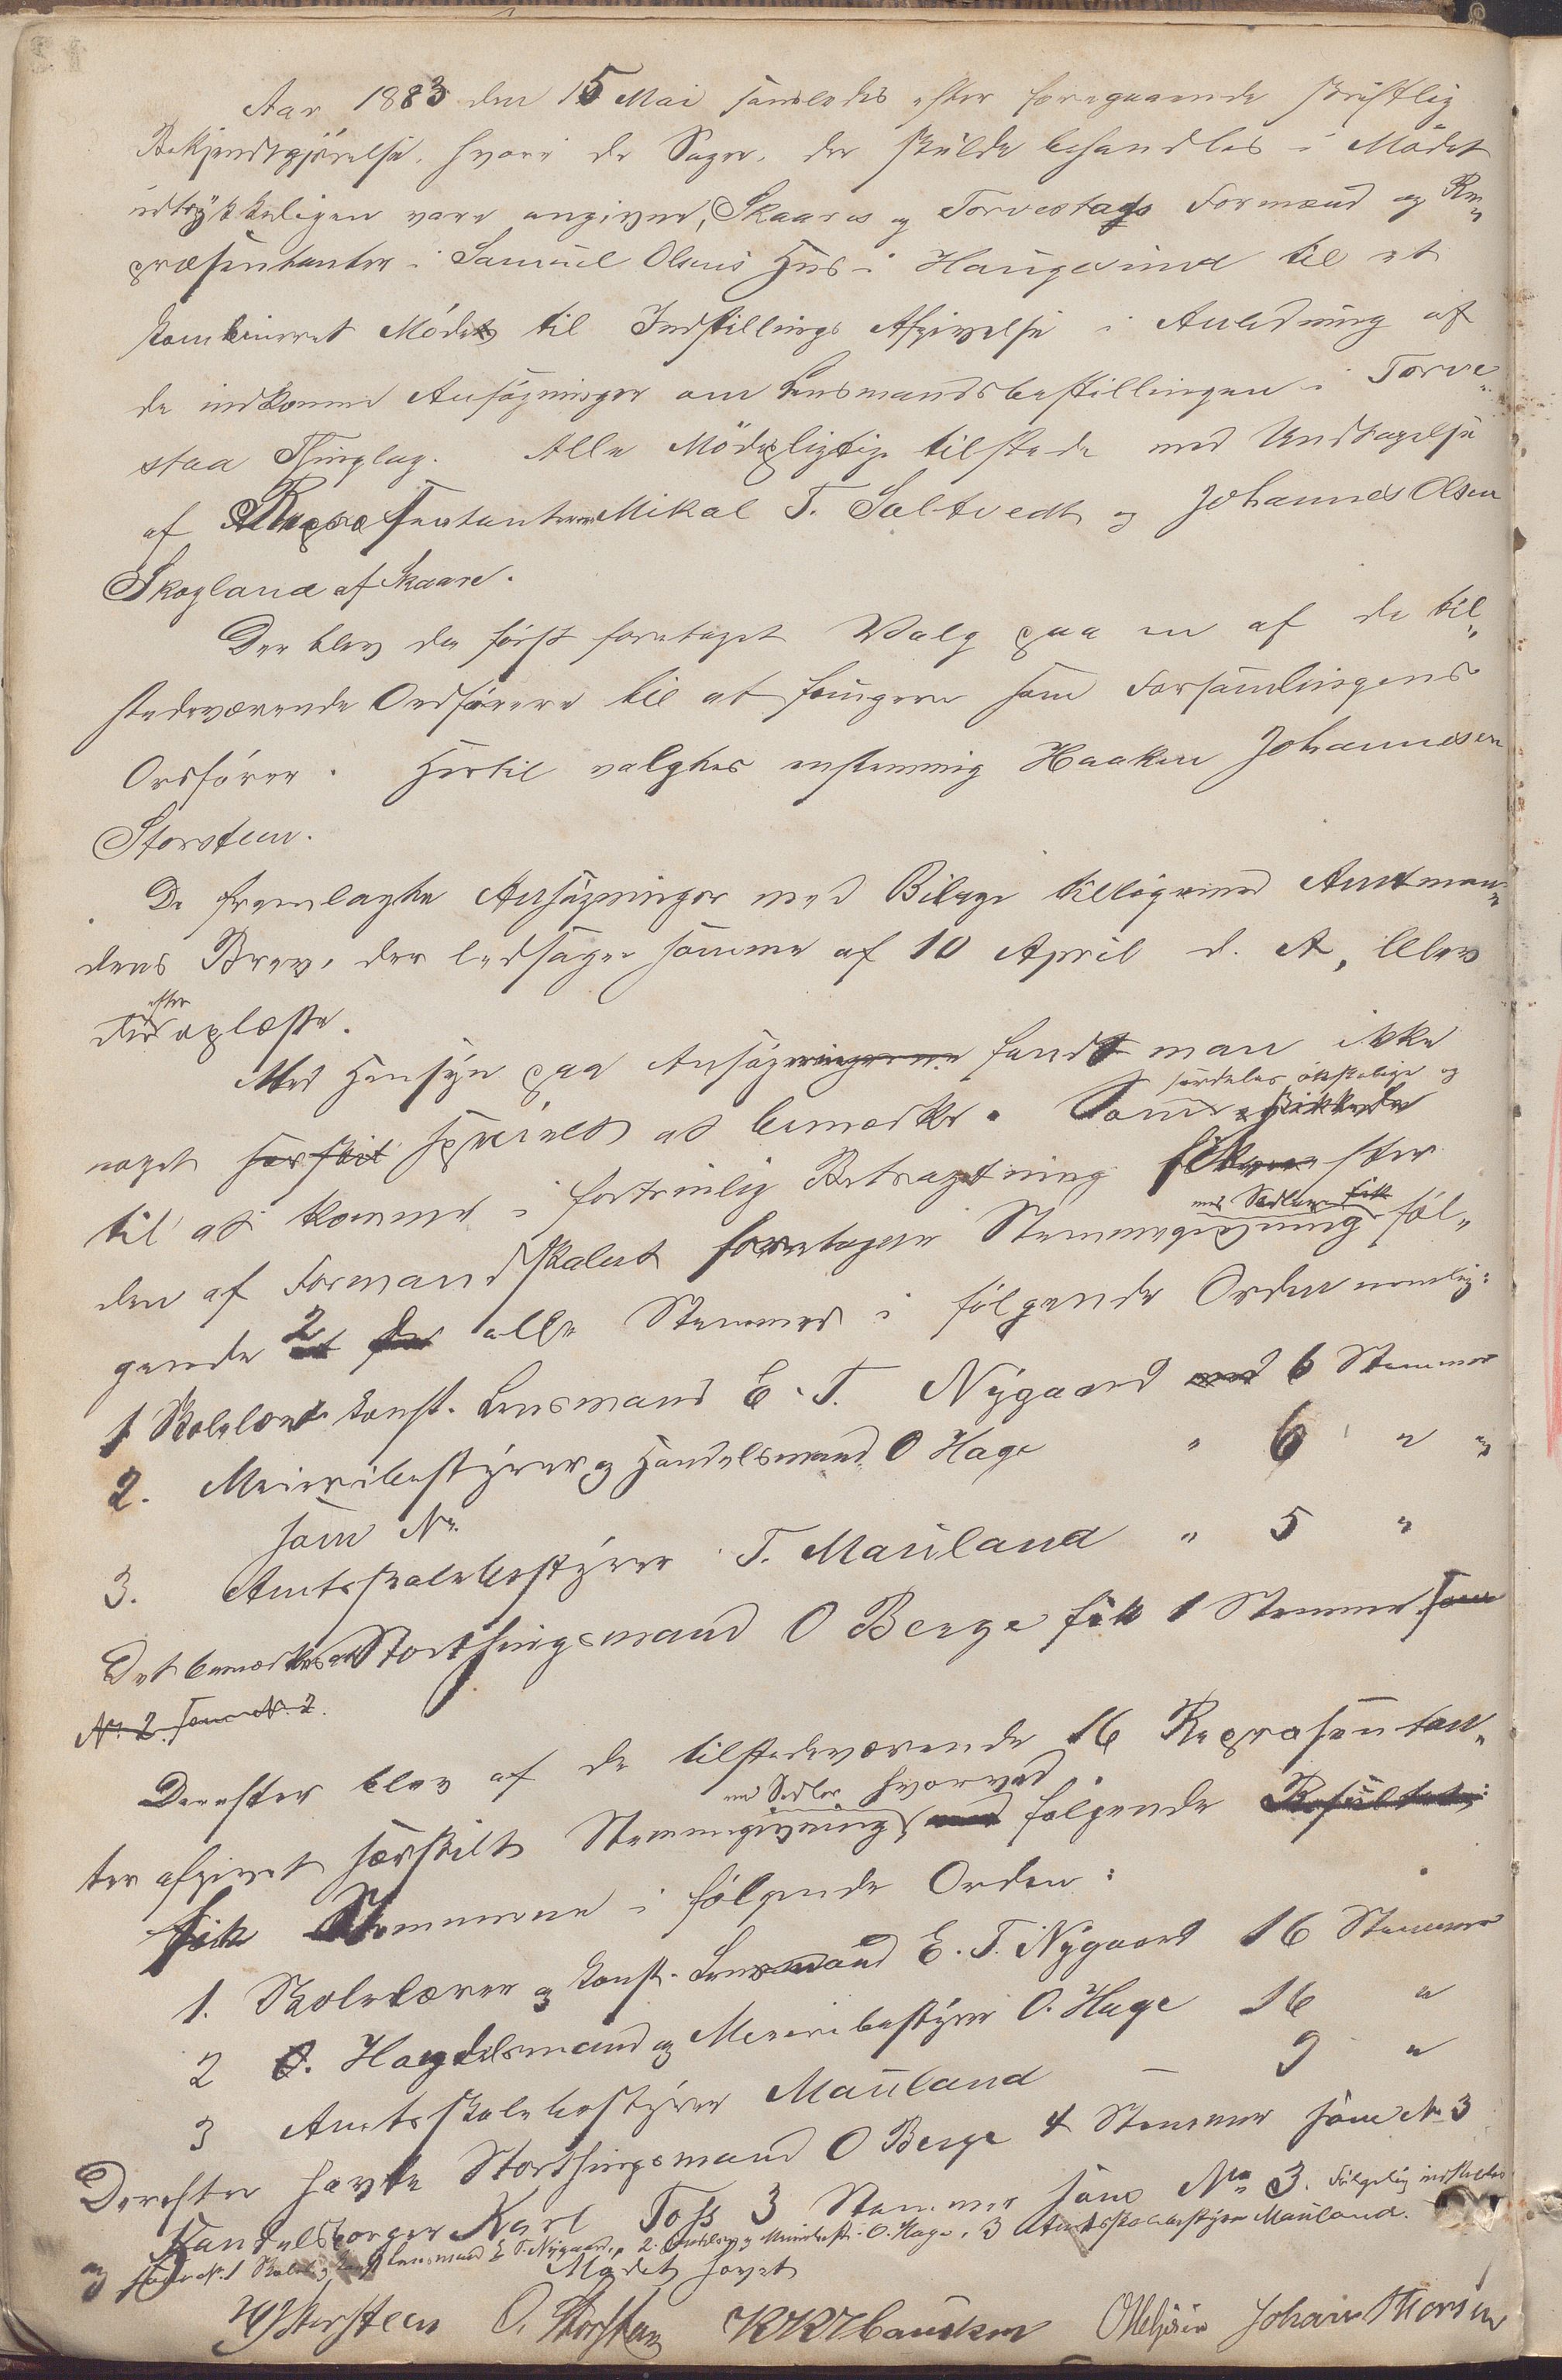 Aar 1883 den 15 Mai samledes efter foregaaende skriftlig
Bekjendtgjörelse, hvori de Sager, der skulde behandles i Mödet
udtrykkeligen vare angivne, Skaares og Torvestads Formænd og Re„
præsentanter i Samuel Olsens Hus i Haugesund til et
kombineret Möde til Indstillings Afgivelse i Anledning af
de indkomne Ansögninger om Lensmandsbestillingen i Torve„
staa Thinglag. Alle Mödepligtige tilstede med Undtagelse
af Repræsentanterne Mikal T. Saltvedt og Johannes Olsen
Skogland af Skaare.
Der blev da först foretaget Valg paa en af de til„
stedeværende Ordförere til at fungere som Forsamlingens
Ordförer. Hertil valgtes enstemmig Haakon Johannesen
Storsteen.
De fremlagte Ansögninger med Bilage tilligemed Amtman„
dens Brev, der ledsager samme af 10 April d. A, blev
efter
der oplæste.
Med Hensyn paa Ansögningerne fandt man ikke
særdeles önskelige og
noget særskilt specielt at bemærke. Som skikkede
til at komme i fortrinlig Betragtning fik efter
med Sedler fik
den af Formandskabet foretagne Stemmegivning föl„
gende 2 alle Stemmer i fölgende Orden nemlig:
1 Skolelær. konst. Lensmand E. T. Nygaard med 6 Stemmer
2. Meieribestyrer og Handelsmand O Hage " 6 " "
som No
3. Amtsskolebestyrer T. Mauland " 5 "
Det bemærkes at Storthingsmand O Berge fik 1 Stemme som
No 2. som No 2.
Derefter blev af de tilstedeværende 16 Repræsentan„
med Sedler hvorved
ter afgivet særskilt Stemmegivning med fölgende Resultat:
fik Stemmerne i fölgende Orden:
1. Skolelærer og konst. Lensmand E. T. Nygaard 16 Stemmer
2 O. Handelsmand og Meieribestyrer O. Hage 16 "
3 Amtsskolebestyrer Mauland – 9 "
Derefter havde Storthingsmand O Berge 4 Stemmer som No 3
og Handelsborger Karl Toss 3 Stemmer som No 3. Fölgelig indstilles
som No 1 Skolel. og konst Lensmand E T. Nygaard, 2. Handelsm. og Meieribest. O. Hage, 3 Amtsskolebestyrer Mauland.
Mödet hævet
HJStorsteen O. Storsteen Johan Thorsen